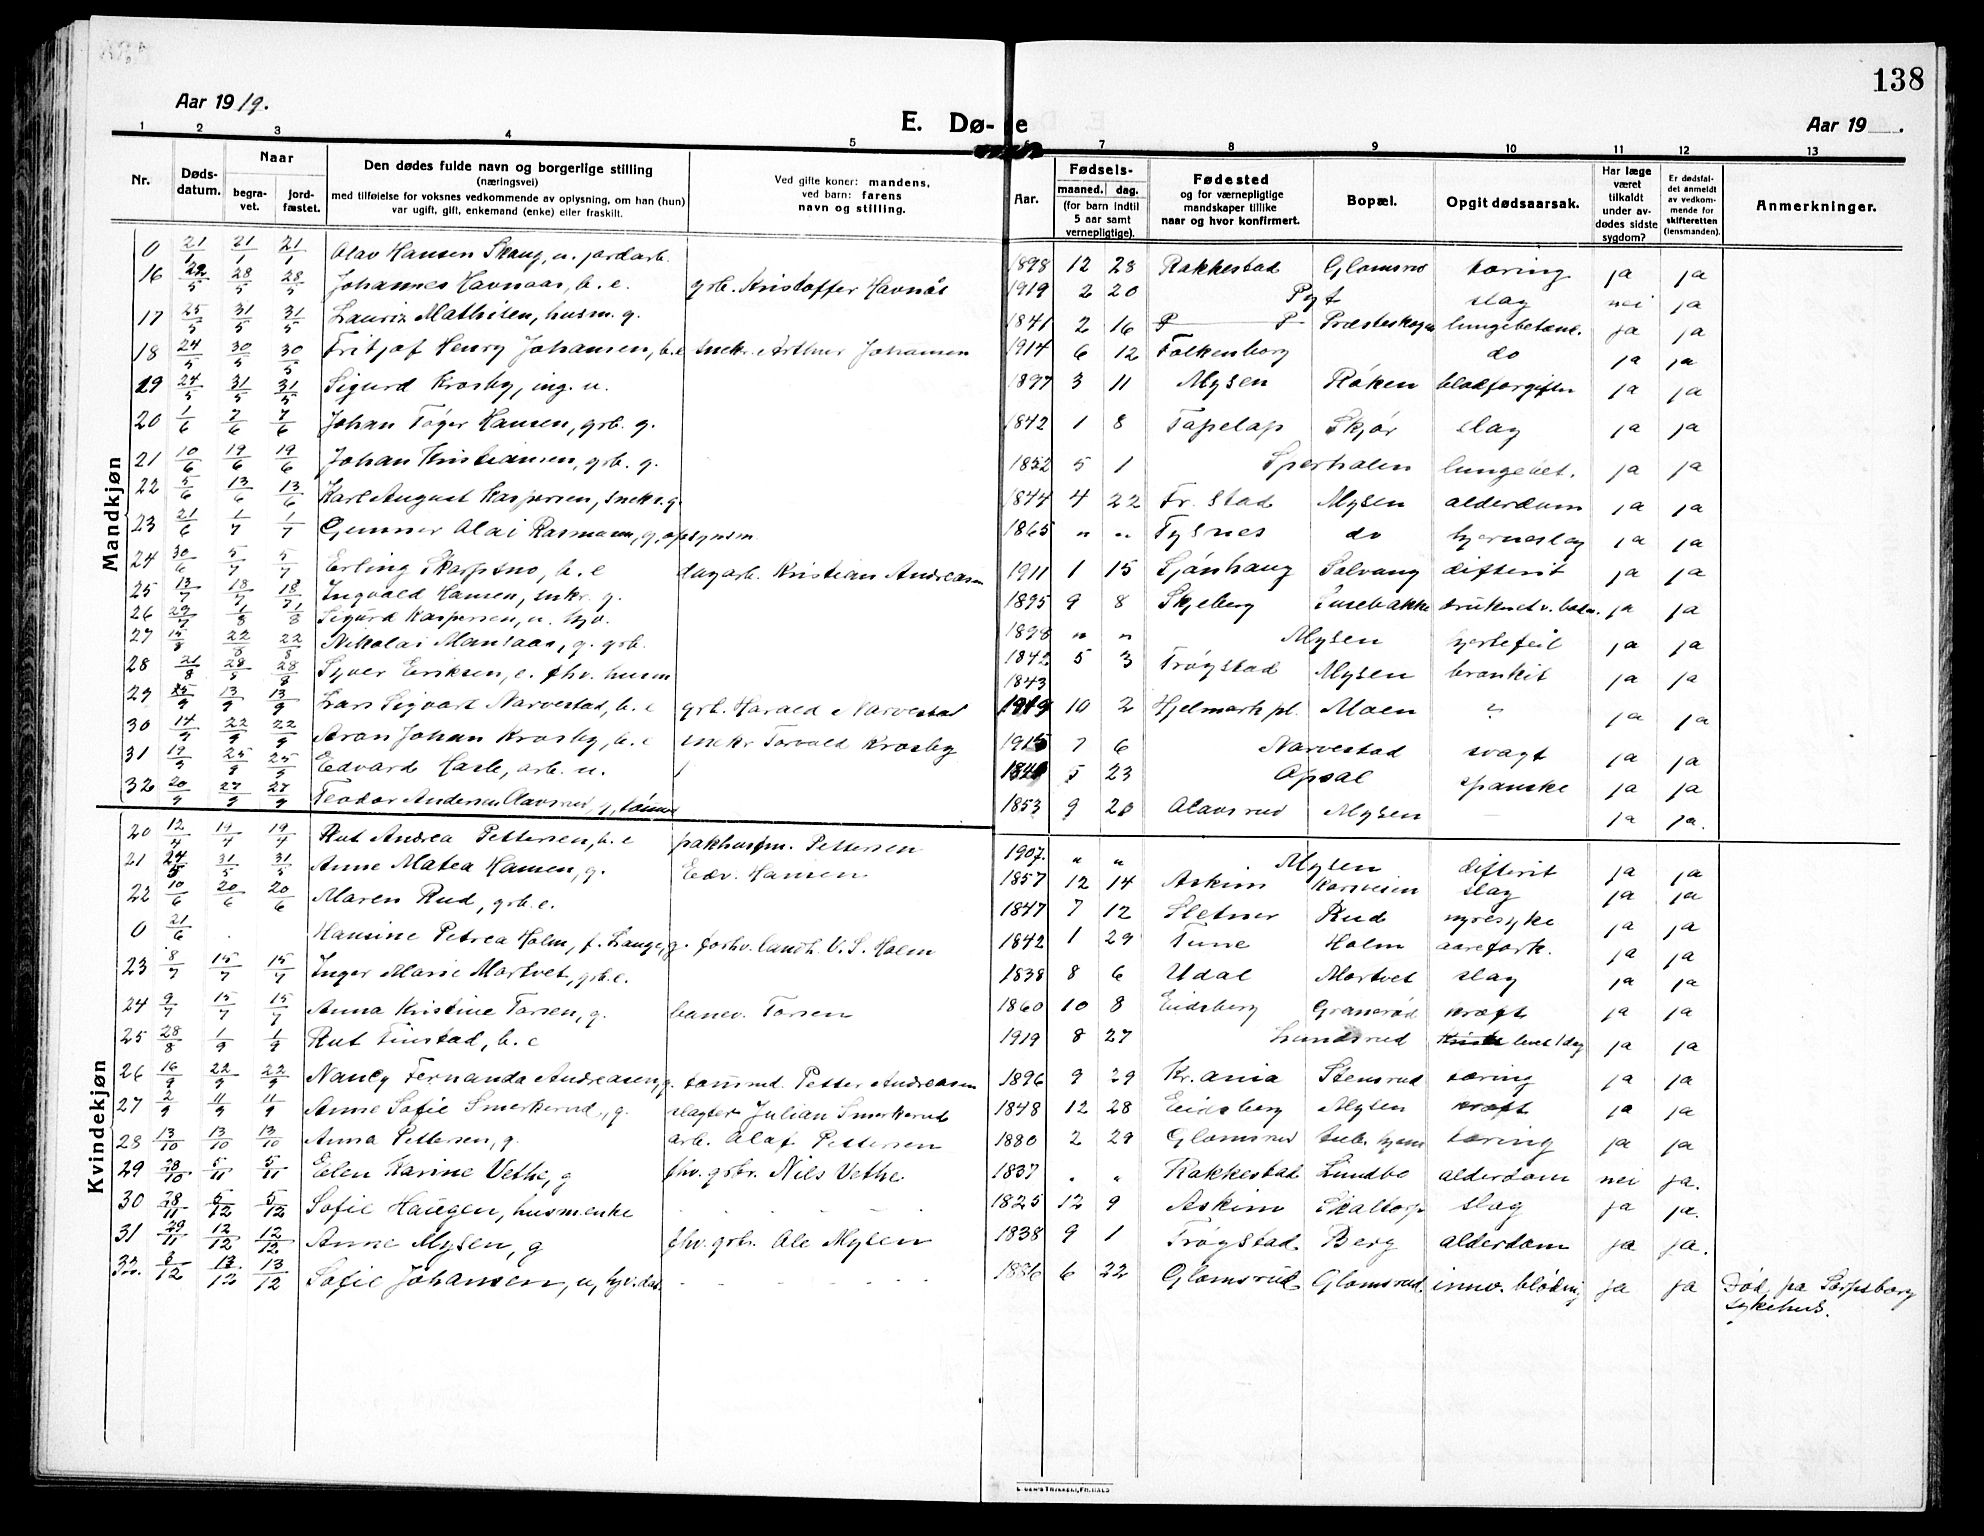 138
Aar 1919.
E. Dø- de
Aar 19 .
1 2 3 4 5 7 8 9 10 11 12 13
Nr.
Døds-datum.
Naar
begra-vet.
jord-fæstet.
Den dødes fulde navn og borgerlige stilling
(næringsvei)
med tilføielse for voksnes vedkommende av oplysning, om han (hun)
var ugift, gift, enkemand (enke) eller fraskilt.
Ved gifte koner: mandens,
ved barn: farens
navn og stilling.
Aar.
Fødsels-
maaned. dag.
(for barn indtil
5 aar samt
vernepligtige).
Fødested
og for værnepligtige
mandskaper tillike
naar og hvor konfirmert.
Bopæl.
Opgit dødsaarsak.
Har læge
været
tilkaldt
under av-
dødes sidste
sygdom?
Er dødsfal-
det anmeldt
av vedkom-
mende for
skifteretten
(lensmanden).
Anmerkninger.
Mandkjøn
0 21/1 21/1 21/1 Olav Hansen Skaug, u. jordarb. 1898 12 23 Rakkestad Glomsrud tæring ja ja
16 22/5 28/5 28/5 Johannes Havnaas, b. e. grb. Kristoffer Havnås 1919 2 20 slag nei ja
17 25/5 31/5 31/5 Lauriz Mathisen, husm. g. 1841 2 16 P P Præsteskogen lungebetæn. ja ja
18 24/5 30/5 30/5 Fritjof Henry Johansen, b. e snekr. Arthur Johansen 1914 6 12 Folkenborg do ja ja
19 24/5 31/5 31/5 Sigurd Krosby, ing. u. 1897 3 11 Mysen Røken blodforgiftn ja ja
20 1/6 7/6 7/6 Johan Tøger Hansen, grb. g. 1842 1 8 Tapelap Skjør slag ja ja
21 10/6 19/6 19/6 Johan Kristiansen, grb. g. 1852 5 1 Sperhalen lungebet. ja ja
22 5/6 13/6 13/6 Karl August Kaspersen, snekr. g. 1844 4 22 Fr. stad Mysen alderdom ja ja
23 21/6 1/7 1/7 Gunner Olai Rasmussen, g, opsynsm. 1865 " " Tysnes do hjerneslag ja ja
24 30/6 5/7 5/7 Erling Skarpsno, b. e dagarb. Kristian Andreasen 1911 1 15 Sjønhaug Solvang difterit ja ja
25 13/7 18/7 18/7 Ingvald Hansen, snkr. g. 1895 9 8 Skjeberg Susebakke druknet v. badn. ja ja
26 29/7 1/8 1/8 Sigurd Kaspersen, u. hjv. 1898 " " Mysen hjertefeil ja ja
27 15/8 22/8 22/8 Nikolai Monsaas, g. grb. 1842 5 3 Trøgstad Mysen bronkit ja ja
28 21/8 28/8 28/8 Syver Eriksen, e. fhv. husm 1843
29 25/9 13/9 13/9 Lars Sigvart Narvestad, b. e grb. Harald Narvestad 1919 10 2 Hjelmark pl. Moen " ja ja
30 14/9 22/9 22/9 Aron Johan Krosby, b. e snekr Torvald Krosby 1915 7 6 Narvestad svagt ja ja
31 19/9 25/9 25/9 Edvard Hasle, arb. u. 5 23 Opsal spanske ja ja
32 20/9 27/9 27/9 Teodor Andersen Olavsrud, g, tømrm 1853 9 20 Olavsrud Mysen ja ja.
Kvindekjøn
20 12/4 19/4 19/4 Rut Andrea Pettersen, b. e pakhusfm. Pettersen 1907. " " Mysen difterit ja ja
21 24/5 31/5 31/5 Anne Matea Hansen, g. Edv. Hansen 1857 12 14 Askim Korsveien slag ja ja
22 10/6 20/6 20/6 Maren Rud, grb. e. 1847 7 12 Sletner Rud nyresyke ja ja
0 21/6 . Hansine Petrea Holm, f. Lange, g. forhv. landh. V. S. Holm 1842 1 29 Tune Holm aarefork. ja ja
23 8/7 15/7 15/7 Inger Marie Mortvet, grb. e. 1838 8 6 Udal Mortvet slag ja ja
24 9/7 15/7 15/7 Anna Kristine Torsen, g. banev. Torsen 1860 10 8 Eidsberg Granerød kræft ja ja
25 28/8 1/9 1/9 Rut Finstad, b. e 1919 8 27 Lundsrud levet 1 dag ja ja
26 16/9 22/9 22/9 Nancy Fernanda Andreasen, g. tømrmd. Petter Andreasen 1896 9 29 Kr.ania Stensrud tæring ja ja
27 2/9 11/9 11/9 Anne Sofie Smerkerud, g. slagter Julian Smerkerud 1848 12 28 Eidsberg Mysen kræft ja ja
28 13/10 13/10 13/10 Anna Pettersen, g. arb. Olaf Pettersen 1880 2 29 Glomsrud tub. hjem tæring ja ja
29 28/10 5/11 5/11 Elen Karine Vethe, g fhv. grbr. Nils Vethe. 1837 " " Rakkestad Lundbe alderdom nei ja.
30 28/11 5/12 5/12 Sofie Haugen, husmenke 1825 12 9 Askim Skaltorp slag ja ja.
31 29/11 12/12 12/12 Anne Mysen, g fhv. grb. Ole Mysen 1838 9 1 Trøgstad Berg alderdom ja ja.
32. 6/12 13/12 13/12 Sofie Johansen, u, hjv. dat. 1886 6 22 Glomsrud Glomsrud. innv. blødning ja ja Død på Sarpsborg
sykehus.